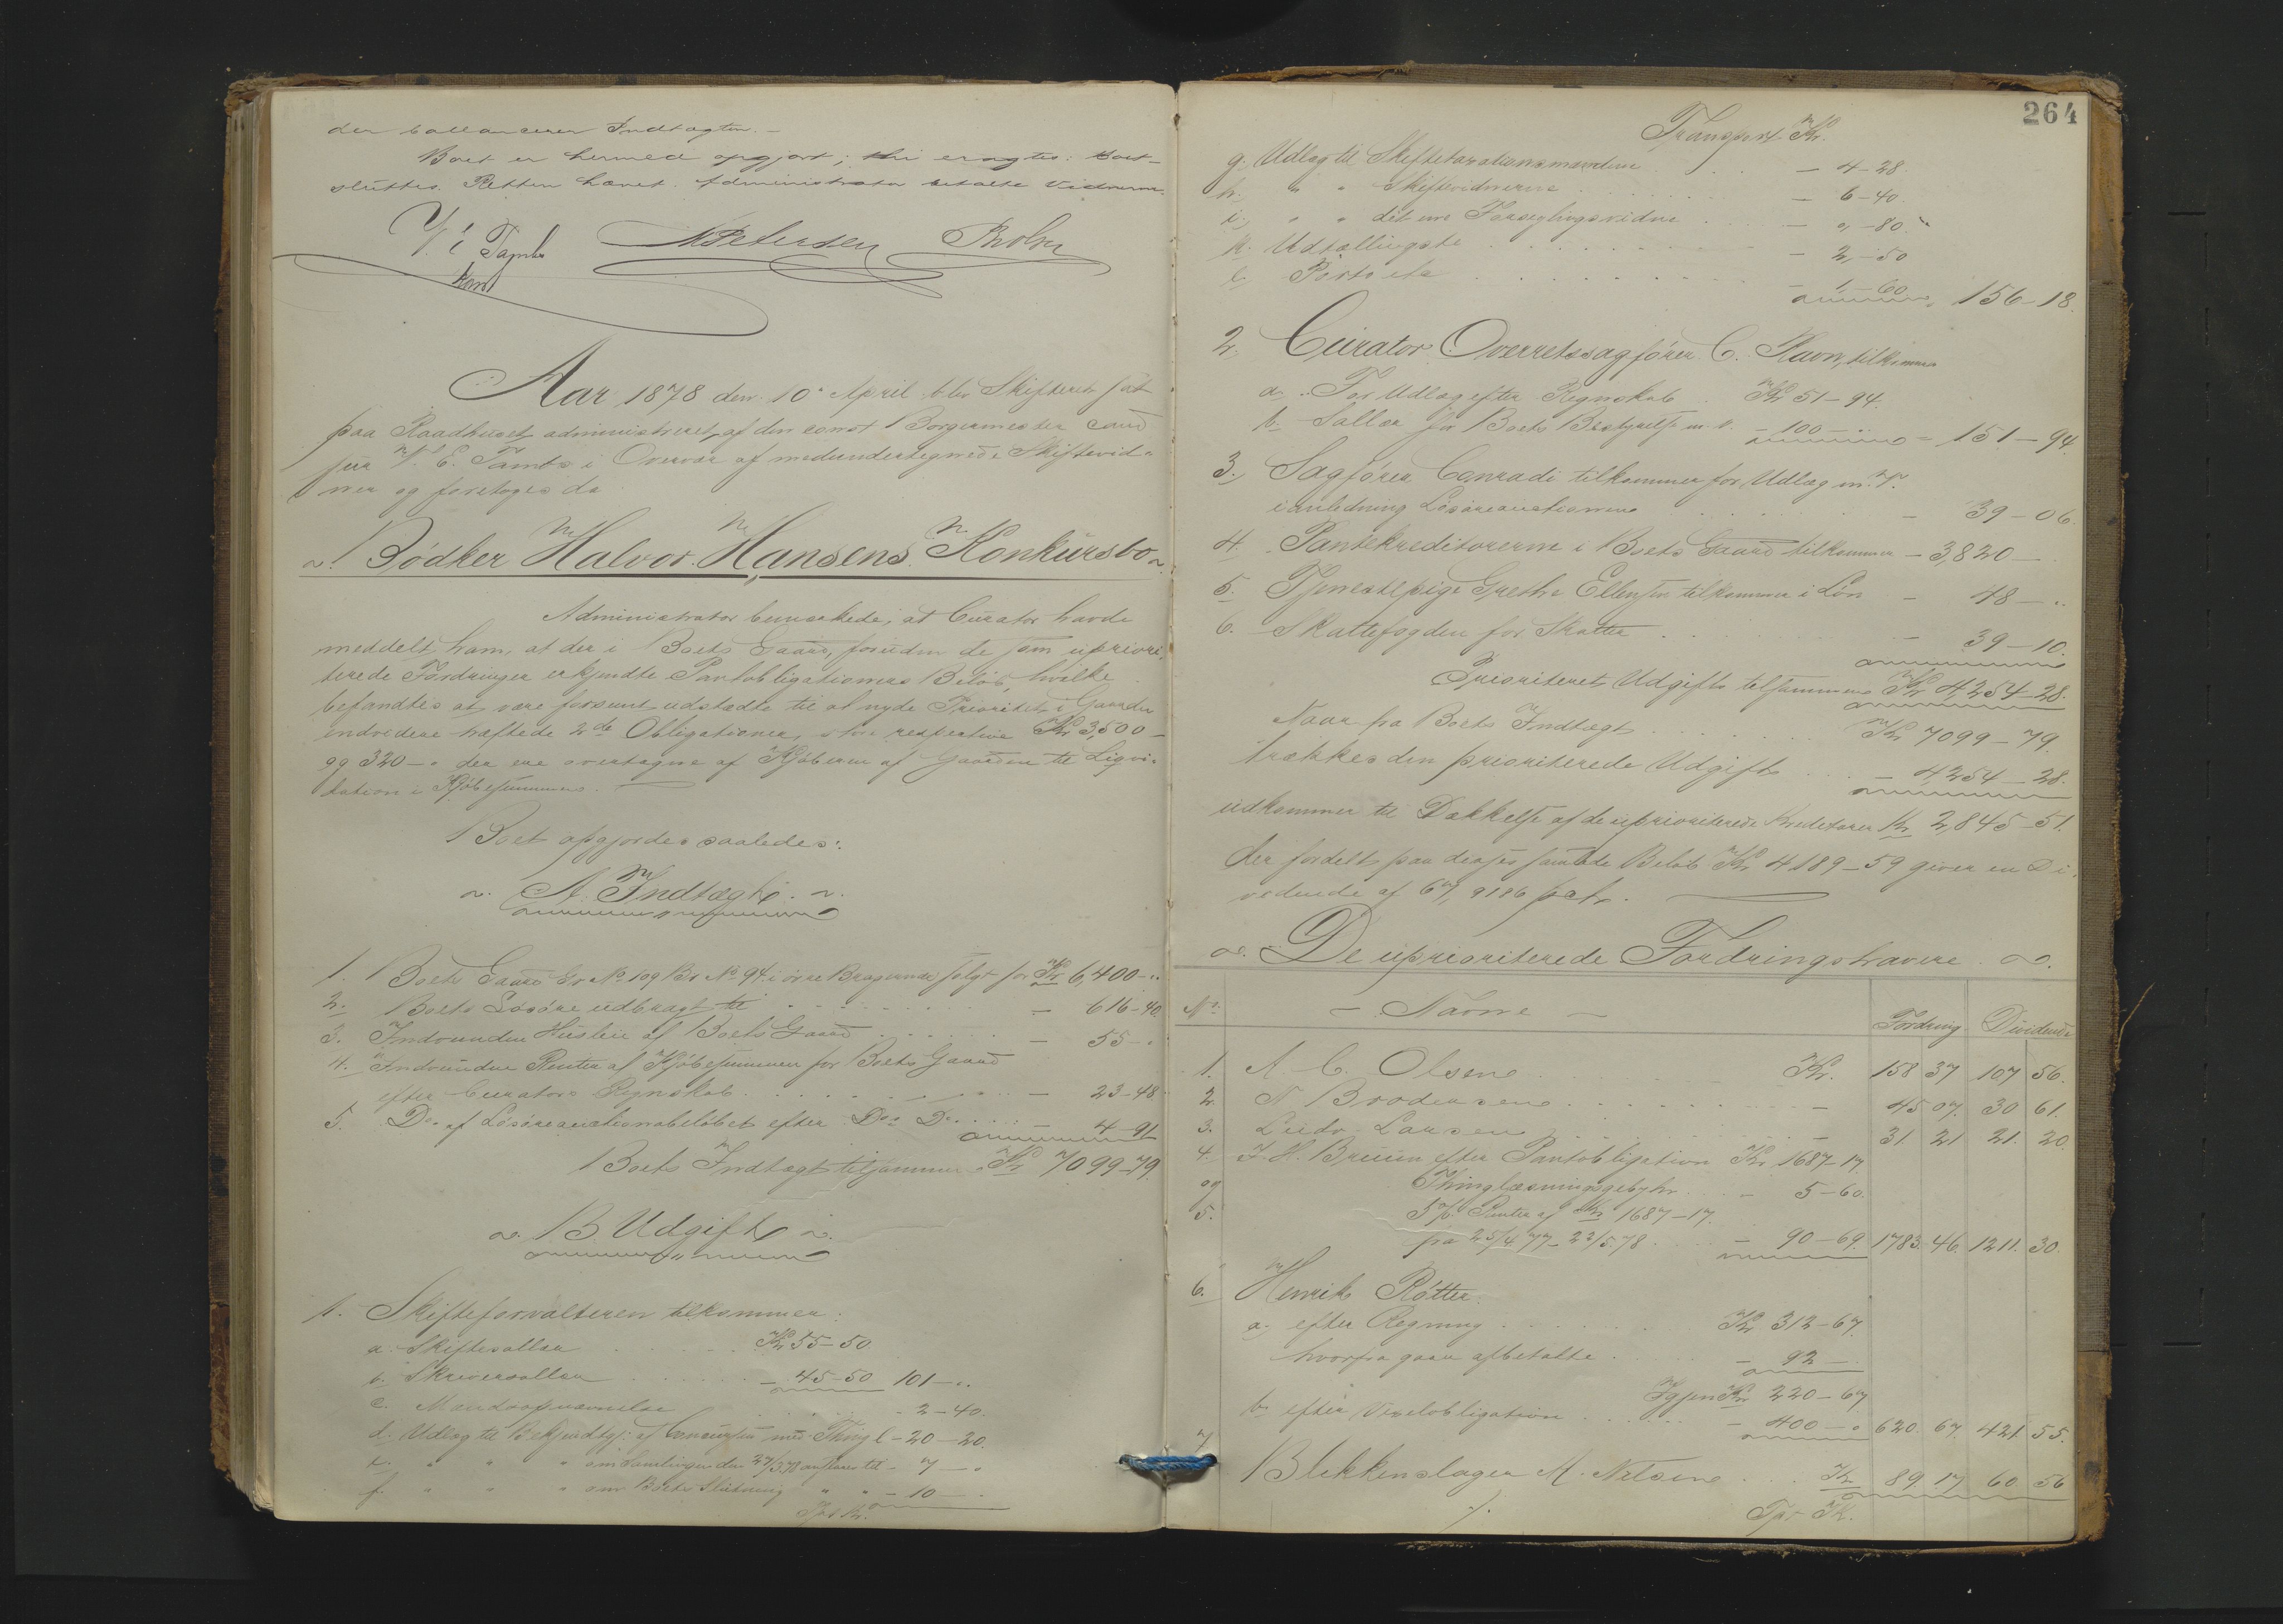 der ballancerer Indtægten. –
Boet er hermed opgjort; thi eragtes: Boet
sluttes. Retten hævet. Administrator betalte Vidnerne.
V. E. Tambs
const
N Petersen
Aar 1878 den 10de April blev Skifteret sat
paa Raadhuset administreret af den const Borgermester Cand
jur V. E. Tambs i Overvær af medundertegnede Skiftevid-
ner og foretoges da
Bødker Halvor Hansens Konkursbo
Administrator bemærkede, at Curator havde
meddelt ham, at der i Boets Gaard, foruden de som upriori-
terede Fordringer erkjendte Pantobligationers Beløb, hvilke
befandtes at være forsent udstædte til at nyde Prioritet i Gaarden
endvidere hæftede 2de Obligationer, store respective Kr 3,500 –
og 320 – „ der ere overtagne af Kjøberen af Gaarden til Liqvi-
dation i Kjøbesummen.
Boet opgjordes saaledes:
A. Indtægt
1. Boets Gaard Ev No 109 Br No 94 i øvre Bragernæs solgt for Kr 6,400 – „
2. Boets Løsøre udbragt til – 616 – 40
3. Indvunden Husleie af Boets Gaard – 55 – „
4. Indvundne Renter af Kjøbesummen for Boets Gaard
efter Curators Regnskab – 23 – 48
5. Do af Løsøreauctionsbeløbet efter Do Do – 4 – 91
Boets Indtægt tilsammen Kr 7099 – 79.
B Udgift
1. Skifteforvalteren tilkommer:
a. Skiftesallær Kr 55 – 50
b. Skriversallær – 45 – 50 101 – „
c. Mandsopnævnelse – 2 – 40.
d. Udlæg til Bekjendtgj: af Concursen med Thingl – 20 – 20.
e. „ „ „ om Samlingen den 27/3 78 anføres til – 7 – „
f. „ „ „ om Boets Slutning „ „ – 10 – „
Tpt Kr.
264
Transport Kr.
g. Udlæg til Skiftetaxationsmændene – 4 – 28.
h. „ „ Skiftevidnerne – 6 – 40.
i. „ „ det ene Forseglingsvidne – „ – 80.
k. Udtællingste – 2 – 50
l. Porto etc – 1 – 60 156 – 18.
2. Curator Overretssagfører C. Ravn, tilkommer
a. For Udlæg efter Regnskab Kr 51 – 94.
b. Sallær for Boets Bestyrelse m. v. – 100 – „ – 151 – 94.
3. Sagfører Conradi tilkommer for Udlæg m. V.
i anledning Løsøreauctionen – 39 – 06.
4. Pantekreditorerne i Boets Gaard tilkommer – 3,820 –
5. Tjenestepige Grethe Ellensen tilkommer i Løn – 48 – „
6. Skattefogden for Skatter – 39 – 10.
Prioriteret Udgift tilsammen Kr 4,254 – 28.
Naar fra Boets Indtægt Kr 7099 – 79.
trækkes den prioriterede Udgift – 4254 – 28.
udkommer til Dækkelse af de uprioriterede Kreditorer Kr 2,845 – 51.
der fordelt paa disses samlede Beløb Kr 4189 – 59 giver en Di-
vidende af 67,9186 pct.
De uprioriterede Fordringshavere.
No – Navne – Fordring Dividende
1. A C. Olsen Kr. 158 37 107 56.
2. N Brodersen – 45 07. 30 61.
3. Ludv Larsen – 31 21 21. 20
4. J. H. Bruun efter Pantobligation Kr 1687 – 17.
og Thinglæsningsgebyhr – 5 – 60.
5. 5 % Renter af Kr 1687 – 17.
fra 25/4 77 – 23/5 78 – 90 – 69. 1783. 46. 1211. 30.
6. Henrik Røtter
a. efter Regning Kr 312 – 67.
hvorpaa gaar afbetalte – 92 –
Igjen Kr 220 – 67
b. efter Vexelobligation – 400 – „ 620. 67. 421. 55.
7. Blikkenslager M. Nilsen Kr 89 17 60 56
Tpt Kr.